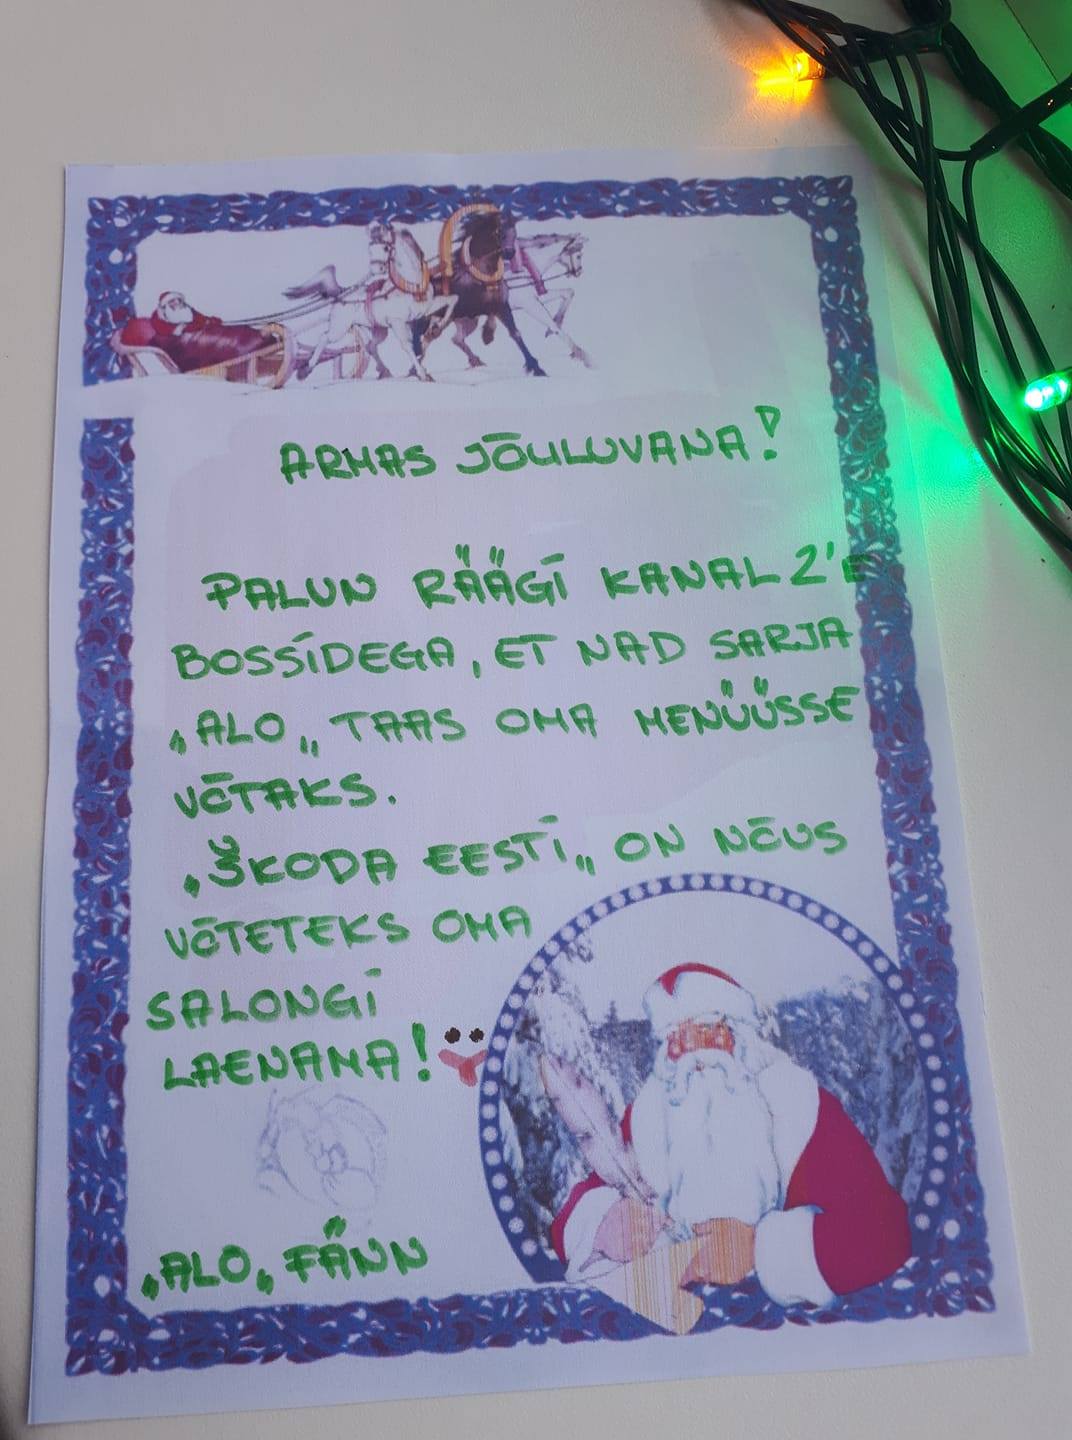 ARMAS JÕULUVANA!
PALUN RÄÄGI KANAL 2'E
BOSSIDEGA, ET NAD SARJA
„ALO„ TAAS OMA MENÜÜSSE
VÕTAKS.
„ŠKODA EESTI„ ON NÕUS
VÕTETEKS OMA
SALONGI
LAENAMA!
„ALO„ FÄNN